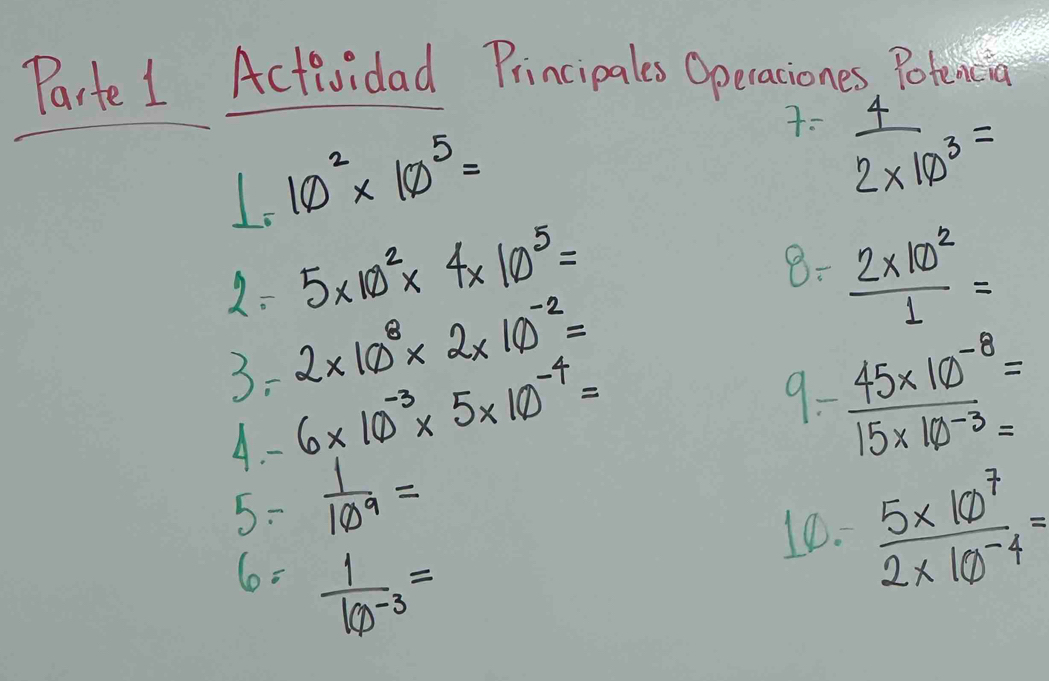 Parte 1 Actividad Principales Operaciones Potencia
1.- 10² x 10⁵ =
2.- 5x10² x 4x10⁵ =
3.- 2x10⁸ x 2x10⁻² =
4.- 6x10⁻³ x 5x10⁻⁴ =
5.- 1/10⁹ =
6.- 1/10⁻³ =
7.- 4/2x10³ =
8.- 2x10²/1 =
9.- 45x10⁻⁸ = / 15x10⁻³ =
10.- 5x10⁷/2x10⁻⁴ =